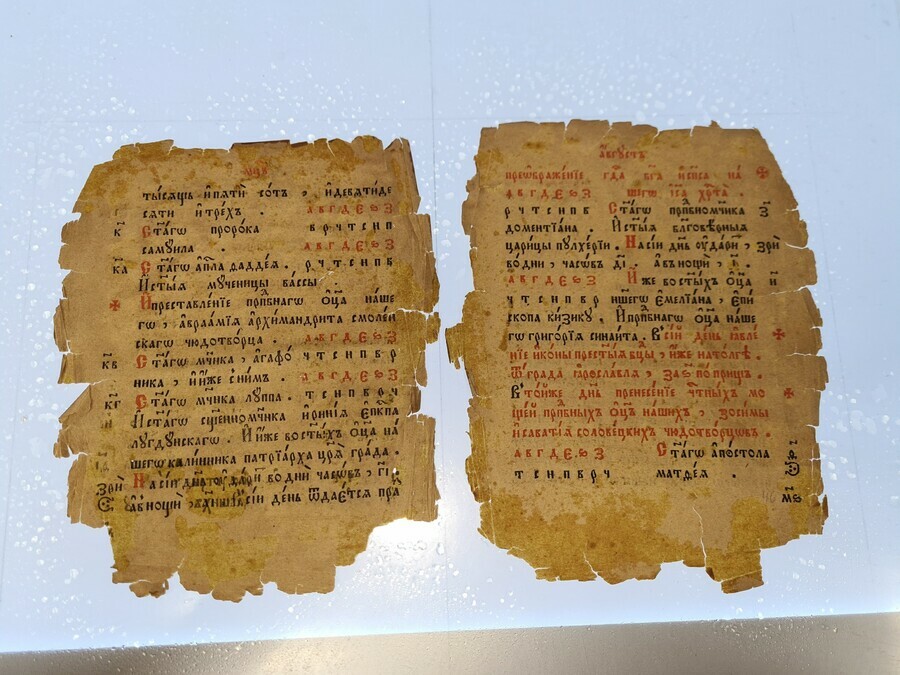 тысящь и҆пятѝ со́тъ , и҆девятде
сяти и҆тре́хъ . а в г д е ѕ з
к҃ Ста́гѡ проро́ка в р ч т с и п
самꙋи́ла . а в г д е ѕ з
к҃а Ста́гѡ а҆п҃ла ѳадде́а . р ч т с и п в
И҆сты́ѧ мꙋ́ченицы ва́ссы
И҆преставле́нїе прпⷣбнагѡ ѻ҆ц҃а на́ше
гѡ , а҆враа́мїѧ а҆рхимандри́та смоле́н
скагѡ чюдотво́рца . а в г д е ѕ з
к҃в Ста́гѡ мч҃нка , а҆гаѳо́ ч т с и п в р
ника , и҆и́же с̾ни́мъ . а в г д е ѕ з
к҃г Ста́гѡ мч҃нка лꙋ́ппа . т с и п в р ч
И҆ста́гѡ сщ҃енномч҃нка и҆рині́ѧ е҆пкⷭ҇па
лꙋгдꙋ́нскагѡ . И҆и́же восты́хъ ѻ҆ц҃а на́
шегѡ калли́нника патрїа́рха цр҃ѧ гра́да .
во днѝ часѡ́въ , г҃і
в̾но́щи се́й де́нь ѿдае́тсѧ пра́
а҆́вгꙋстъ
преѡбраже́нїе гдⷭ҇а бг҃а и҆сп҃са на́
а в г д е ѕ з шегѡ і҆с҃а хрⷭ҇та̀ .
р ч т с и п в Ста́гѡ прпⷣбномч҃нка з҃
домент̾їа́на . И҆сты́ѧ бл҃гове́рныѧ
цари́цы пꙋлхе́рїи . На́сїи дн҃ь ᲂу҆да́ри , зрѝ
во днѝ , часѡ́въ д҃і . а҆в̾но́щи , і҃ .
а в г д е ѕ з И҆́же восты́хъ ѻ҆ц҃а и҃
ч т с и п в р на́шегѡ е҆мелїа́на , е҆пи́
скопа ки́зикꙋ . И҆прпⷣбнагѡ ѻ҆ц҃а на́ше
гѡ григо́рїѧ сина́ита . В̾се́й де́нь ꙗ҆вле́
нїе и҆ко́ны прест҃ы́ѧ вл҃цы , и҆́же нато́лгѣ .
ѿ гра́да ꙗ҆росла́влѧ , за ѕ҃ по́прищъ .
В̾то́йже дн҃ь пренесе́нїе чⷭ҇тны́хъ мо
ще́й прпⷣбныхъ ѻ҆ц҃ъ на́шихъ , зоси́мы
и҆сава́тїѧ солове́цкихъ чюдотво́рцѡвъ .
а в г д е ѕ з Ста́гѡ а҆по́стола
т с и п в р ч матѳе́ѧ .